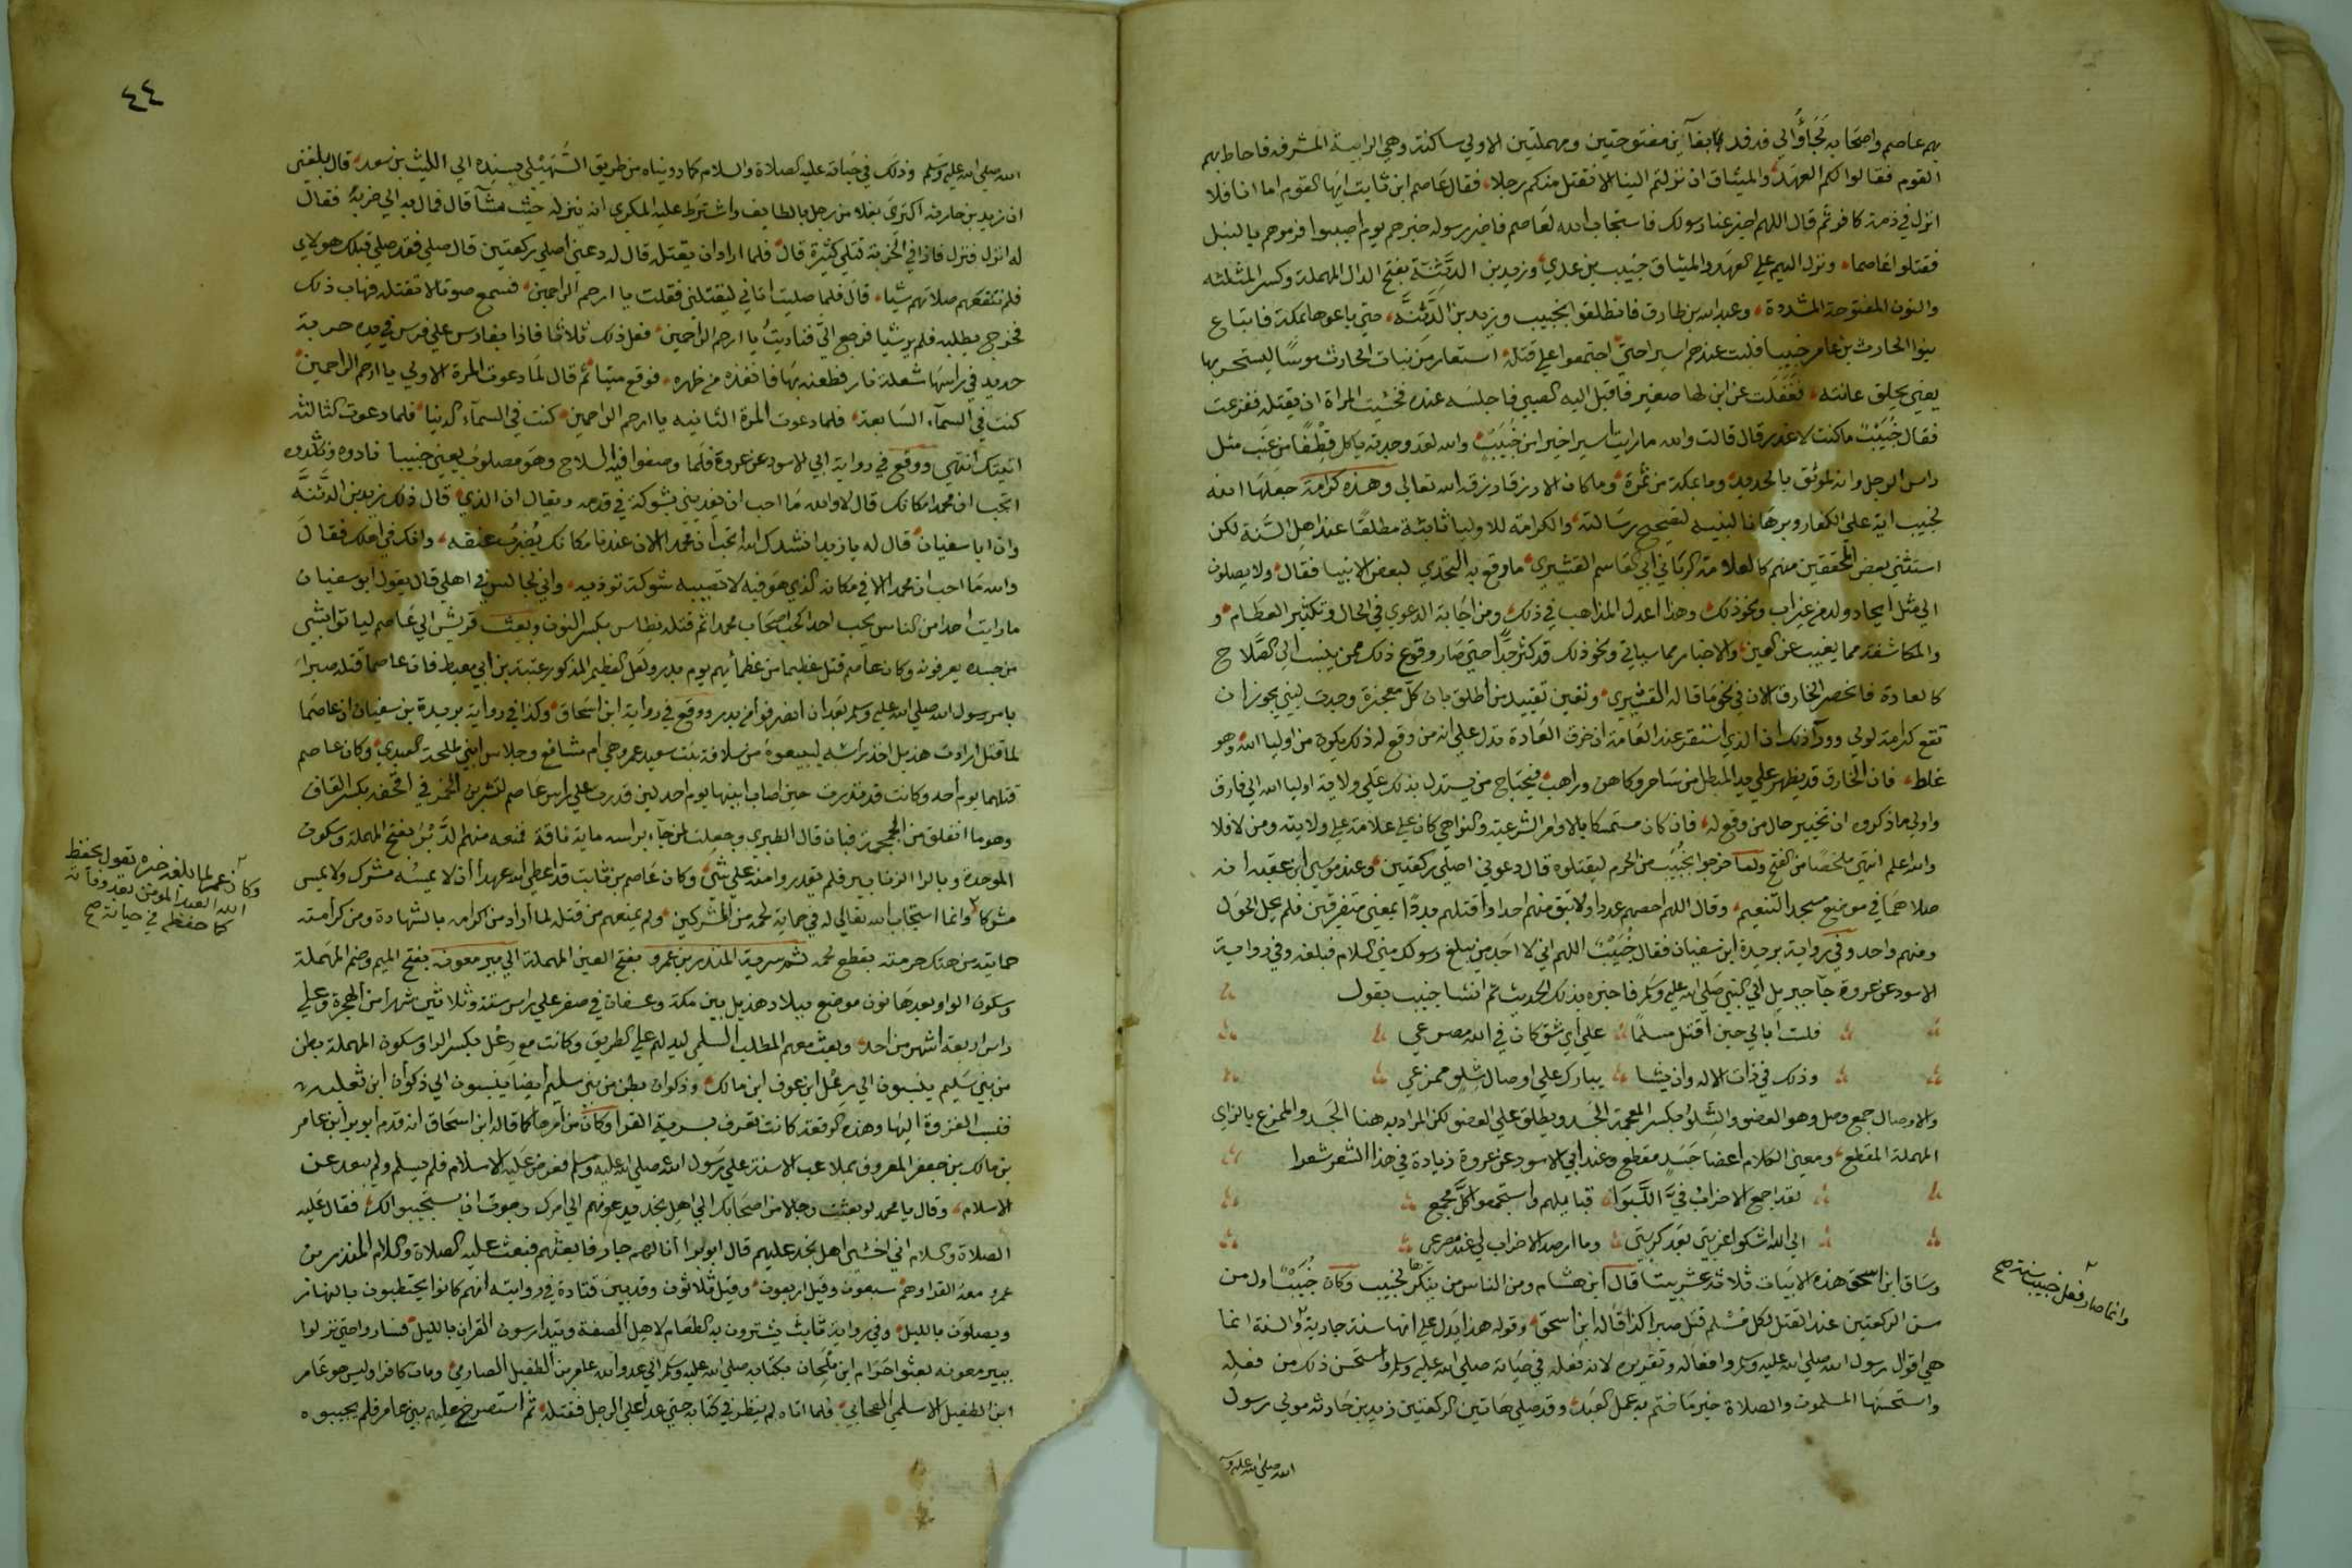 بهم عاصم واصحابه لجاؤا الي فدفد بفآين مفتوحتين ومهملتين الاولي ساكنة وهي الرابية المشرفه فاحاط بهم
القوم فقالوا لكم العهد والميثاق ان نزلتم الينا لا نقتل منكم رجلا فقال عاصم ابن ثابت ايها القوم اما انا فلا
انزل في ذمة كافر ثم قال اللهم اخبر عنا رسولك فاستجاب الله لعاصم فاخبر رسوله خبرهم يوم اصيبوا فرموهم بالنبل
فقتلوا عاصما ونزل اليهم علي العهد والميثاق خبيب بن عدي وزيد بن الدثنة بفتح الدال المهملة وكسر المثلثه
والنون المفتوحة المشددة وعبد الله بن طارق فانطلقوا بخبيب وزيد بن الدثنه حتي باعوهما بمكة فابتاع
بنوا الحارث بن عامر خبيبا فلبث عندهم اسيرا حتي اجتمعوا علي قتله استعار من بنات الحارث موسا ليستحد بها
يعني يحلق عانته فغفلت عن ابن لها صغير فاقبل اليه الصبي فاجلسه عنده فخشيت المراة ان يقتله ففزعت
فقال خبيب ما كنت لاغدر قال قالت والله ما رايت اسيرا خيرا من خبيب والله لقد وجدته ياكل قطفا من عنب مثل
راس الرجل وانه لموثق بالحديد وما بمكة من ثمرة وما كان الا رزقا رزقه الله تعالي وهذه كرامة جعلها الله
لخبيب اية علي الكفار وبرهانا لنبيه لتصحيح رسالته والكرامة للاوليا ثابتة مطلقا عند اهل السنة لكن
استثني بعض المحققين منهم كالعلامة الرباني ابي القاسم القشيري ما وقع به التحدي لبعض الانبيا فقال ولا يصلون
الي مثل ايجاد ولد من غير اب ونحو ذلك وهذا اعدل المذاهب في ذلك ومن اجابة الدعوي في الحال وتكثير الطعام و
والمكاشفة مما يغيب عن العين والاخبار مما سياتي ونحو ذلك قد كثر جدا حتي صار وقوع ذلك ممن ينسب الي الصلاح
كالعادة فانحصر الخارق الان في نحو ما قاله القشيري وتعين تقييد من اطلق بان كل معجزة وجدت لنبي يجوز ان
تقع كرامة لولي ووراء ذلك ان الذي استقر عند العامة ان خرق العادة تدل علي ان من وقع له ذلك يكون من اوليا الله وهو
غلط فان الخارق قد يظهر علي يد المبطل من ساحر وكاهن وراهب فيحتاج من يستدل بذلك علي ولاية اوليا الله الي فارق
واولي ما ذكروه ان تختبر حال من وقع له فان كان متمسكا بالاوامر الشرعية والنواهي كان علي علامة علي ولايته ومن لا فلا
والله اعلم انتهي ملخصا من الفتح ولما خرجوا بخبيب من الحرم ليقتلوه قال دعوني اصلي ركعتين وعند موسي ابن عقبه انه
صلاهما في موضع مسجد التنعيم وقال اللهم احصهم عددا ولا تبق منهم احدا واقتلهم بددا بمعني متفرقين فلم يحل الحول
ومنهم واحد وفي رواية بريدة ابن سفيان فقال خبيب اللهم اني لا اجد من يبلغ رسولك مني السلام فبلغه وفي رواية
الاسود عن عروة جآ جبريل الي النبي صلي الله عليه وسلم فاخبره بذلك الحديث ثم انشا خبيب يقول
فلست ابالي حين اقتل مسلما علي اي شق كان في الله مصرعي
وذلك في ذات الاله وان يشا يبارك علي اوصال شلو ممزعي
والاوصال جمع وصل وهو العضو والشلو بكسر المعجمة الجسد ويطلق علي العضو لكن المراد به هنا الجسد والممزع بالزاي
المهملة المقطع ومعني الكلام اعضا جسد مقطع وعند ابي الاسود عن عروة زيادة في هذا الشعر شعرا
لقد اجمع الاحزاب في والبوا قبايلهم واستجمعوا كل مجمع
الي الله اشكوا غربتي بعد كربتي وما ارصد الاحزاب لي عند مصرعي
وساق ابن اسحق هذه الابيات ثلاثة عشر بيتا قال ابن هشام ومن الناس من ينكرها لخبيب وكان خبيب اول من
سن الركعتين عند القتل لكل مسلم قتل صبرا كذا قاله ابن اسحق وقوله هذا يدل علي انها سنة جارية والسنة انما
هي اقوال رسول الله صلي الله عليه وسلم وافعاله وتقريره لانه فعله في حياته صلي الله عليه وسلم واستحسن ذلك من فعله
واستحسنها المسلمون والصلاة خير ما ختم به عمل العبد وقد صلي هاتين الركعتين زيد بن حارثه مولي رسول
الله صلي الله عليه و
وانما صار فعل خبيب سنة صح
٤٤
الله صلي الله عليه وسلم وذلك في حياته عليه الصلاة والسلام كما رويناه من طريق السهيلي بسنده الي الليث بن سعد قال بلغني
ان زيد بن حارثه اكتري بغلا من رجل بالطايف واشترط عليه المكري ان ينزله حيث شآ قال فمال به الي خربة فقال
له انزل فنزل فاذا في الخربة قتلي كثيرة قال فلما اراد ان يقتله قال له دعني اصلي ركعتين قال صلي فقد صلي قبلك هولاي
فلم تنفعهم صلاتهم شيا قال فلما صليت اتاني ليقتلني فقلت يا ارحم الراحمين فسمع صوتا لا تقتله فهاب ذلك
فخرج يطلبه فلم ير شيا فرجع الي فناديت يا ارحم الراحمين ففعل ذلك ثلاثا فاذا بفارس علي فرس في يده حربة
حديد في راسها شعلة نار فطعنه بها فانفذه من ظهره فوقع ميتا ثم قال لما دعوت المرة الاولي يا ارحم الراحمين
كنت في السمآء السابعة فلما دعوت المرة الثانيه يا ارحم الراحمين كنت في السمآء الدنيا فلما دعوت الثالثه
اتيتك انتهي ووقع في رواية ابي الاسود عن عروة فلما وضعوا فيه السلاح وهو مصلوب يعني خبيبا نادوه ونشدوه
اتحب ان محمدا مكانك قال لا والله ما احب ان يفديني بشوكة في قدمه ويقال ان الذي قال ذلك زيد بن الدثنه
وان ابا سفيان قال له يا زيد انشدك الله اتحب ان محمدا الان عندنا مكانك يضرب عنقه وانك في اهلك فقال
والله ما احب ان محمدا الان في مكانه الذي هو فيه لا تصيبه شوكة توذيه واني لجالس في اهلي قال يقول ابو سفيان
ما رايت احدا من الناس يحب احدا كحب اصحاب محمدا ثم قتله نسطاس بكسر النون وبعثت قريش الي عاصم لياتوا بشي
من جسده يعرفونه وكان عاصم قتل عظيما من عظمائهم يوم بدر ولعل العظيم المذكور عتبة بن ابي معيط فان عاصما قتله صبرا
بامر رسول الله صلي الله عليه وسلم بعد ان انصرفوا من بدر ووقع في رواية ابن اسحاق وكذا في رواية بريدة بن سفيان ان عاصما
لما قتل ارادت هذيل اخذ راسه ليبيعوه من سلافة بنت سعيد عمر وهي ام مشافع وجلاس ابني طلحة العبدي وكان عاصم
قتلهما يوم احد وكانت قد نذرت حين اصاب ابنيها يوم احد لين قدرت علي راس عاصم لتشربن الخمر في اقحفه بكسر القاف
وهو ما انفلق من الجمجمة فبان قال الطبري وجعلت لمن جآء براسه ماية ناقة فمنعه منهم الدبر بفتح المهملة وسكون
الموحدة وبالرا الزنابير فلم يقدروا منه علي شي وكان عاصم بن ثابت قد اعطي الله عهدا ان لا يمسه مشرك ولا يمس
مشركا وانما استجاب الله تعالي له في حماية لحمه من المشركين ولم يمنعهم من قتله لما اراد من اكرامه بالشهادة ومن كرامته
حمايته من هتك حرمته بقطع لحمه ثم سرية المنذر بن عمرو بفتح العين المهملة الي بير معونه بفتح الميم وضم المهملة
وسكون الواو بعدها نون موضع ببلاد هذيل بين مكة وعسفان في صفر علي راس ستة وثلاثين شهرا من الهجرة وعلي
راس اربعة اشهر من احد وبعث معهم المطلب السلمي ليدلهم علي الطريق وكانت مع رعل بكسر الرا وسكون المهملة بطن
من بني سليم ينسبون الي رعل ابن عوف ابن مالك وذكوان بطن من بني سليم ايضا ينسبون الي ذكوان ابن ثعلبه
فنسب الغزوة اليها وهذه الوقعة كانت تعرف بسرية القرا وكان من امرها كما قاله ابن اسحاق انه قدم ابو برا ابن عامر
بن مالك بن جعفر المعروف بملاعب الاسنة علي رسول الله صلي الله عليه وسلم فعرض عليه الاسلام فلم يسلم ولم يبعد عن
الاسلام وقال يا محمد لو بعثت رجالا من اصحابك الي اهل نجد يدعونهم الي امرك رجوت ان يستجيبوا لك فقال عليه
الصلاة والسلام اني اخشي اهل نجد عليهم قال ابو برا انا لهم جار فابعثهم فبعث عليه الصلاة والسلام المنذر بن
عمرو معه القرا وهم سبعون وقيل اربعون وقيل ثلاثون وقد بين قتادة في روايته انهم كانوا يحتطبون بالنهار
ويصلون بالليل وفي رواية ثابت يشترون به الطعام لاهل الصفة ويتدارسون القران بالليل فساروا حتي نزلوا
ببير معونه بعثوا حرام ابن ملحان بكتابه صلي الله عليه وسلم الي عدو الله عامر بن الطفيل العامري ومات كافرا وليس هو عامر
ابن الطفيل الاسلمي الصحابي فلما اتاه لم ينظر في كتابه حتي عدا علي الرجل فقتله ثم استصرخ عليهم بني عامر فلم يجيبوه
وكان عمر لما بلغه خبره يقول يحفظ
الله العبد المومن بعد وفاته
كما حفظه في حياته صح